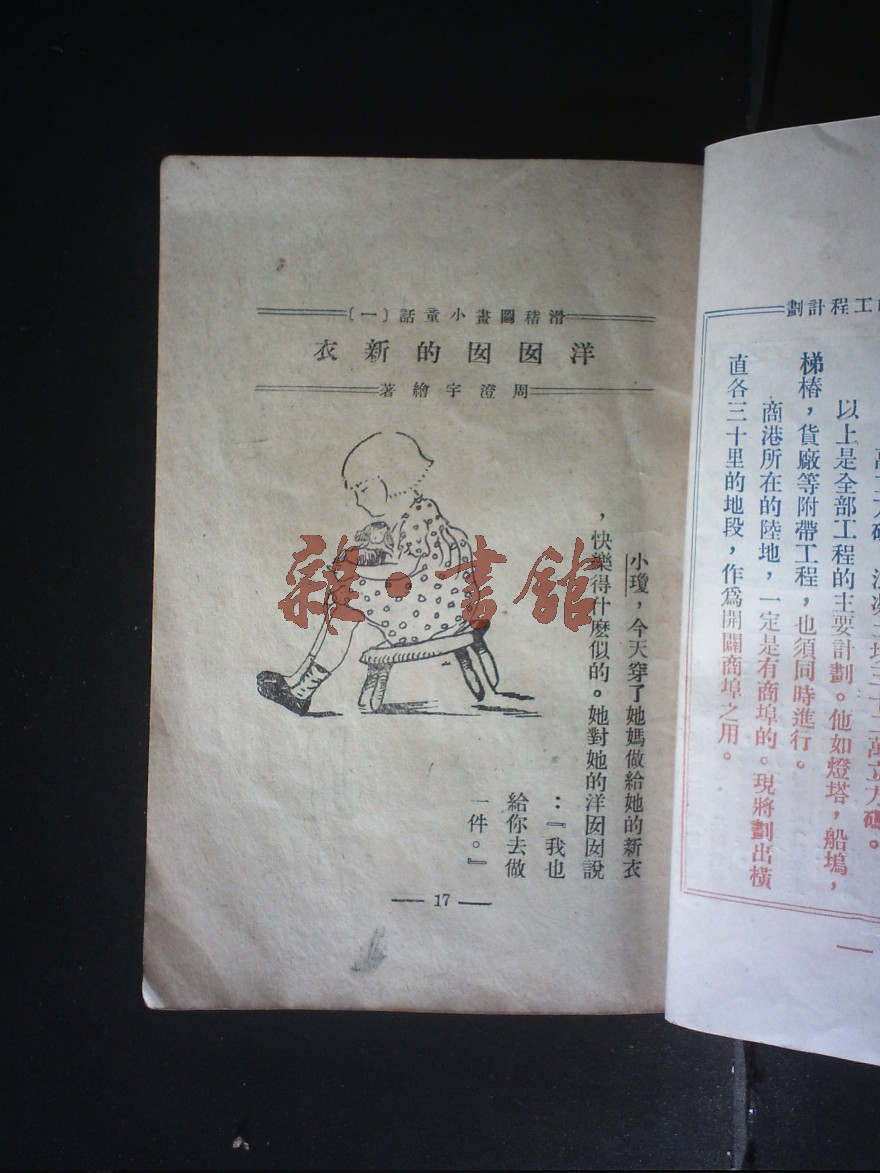 工程計劃
萬立方碼。
以上是全部工程的主要計劃。他如燈塔，船塢，
梯樁，貨廠等附帶工程，也須同時進行。
商港所在的陸地，一定是有商埠的。現將劃出橫
直各三十里的地段，作爲開闢商埠之用。
滑稽圖畫小童話〔一〕
洋囡囡的新衣
周澄宇繪著
小瓊，今天穿了她媽做給她的新衣
，快樂得什麽似的。她對她的洋囡囡說
：『我也
給你去做
一件。』
— 17 —
雜·書館